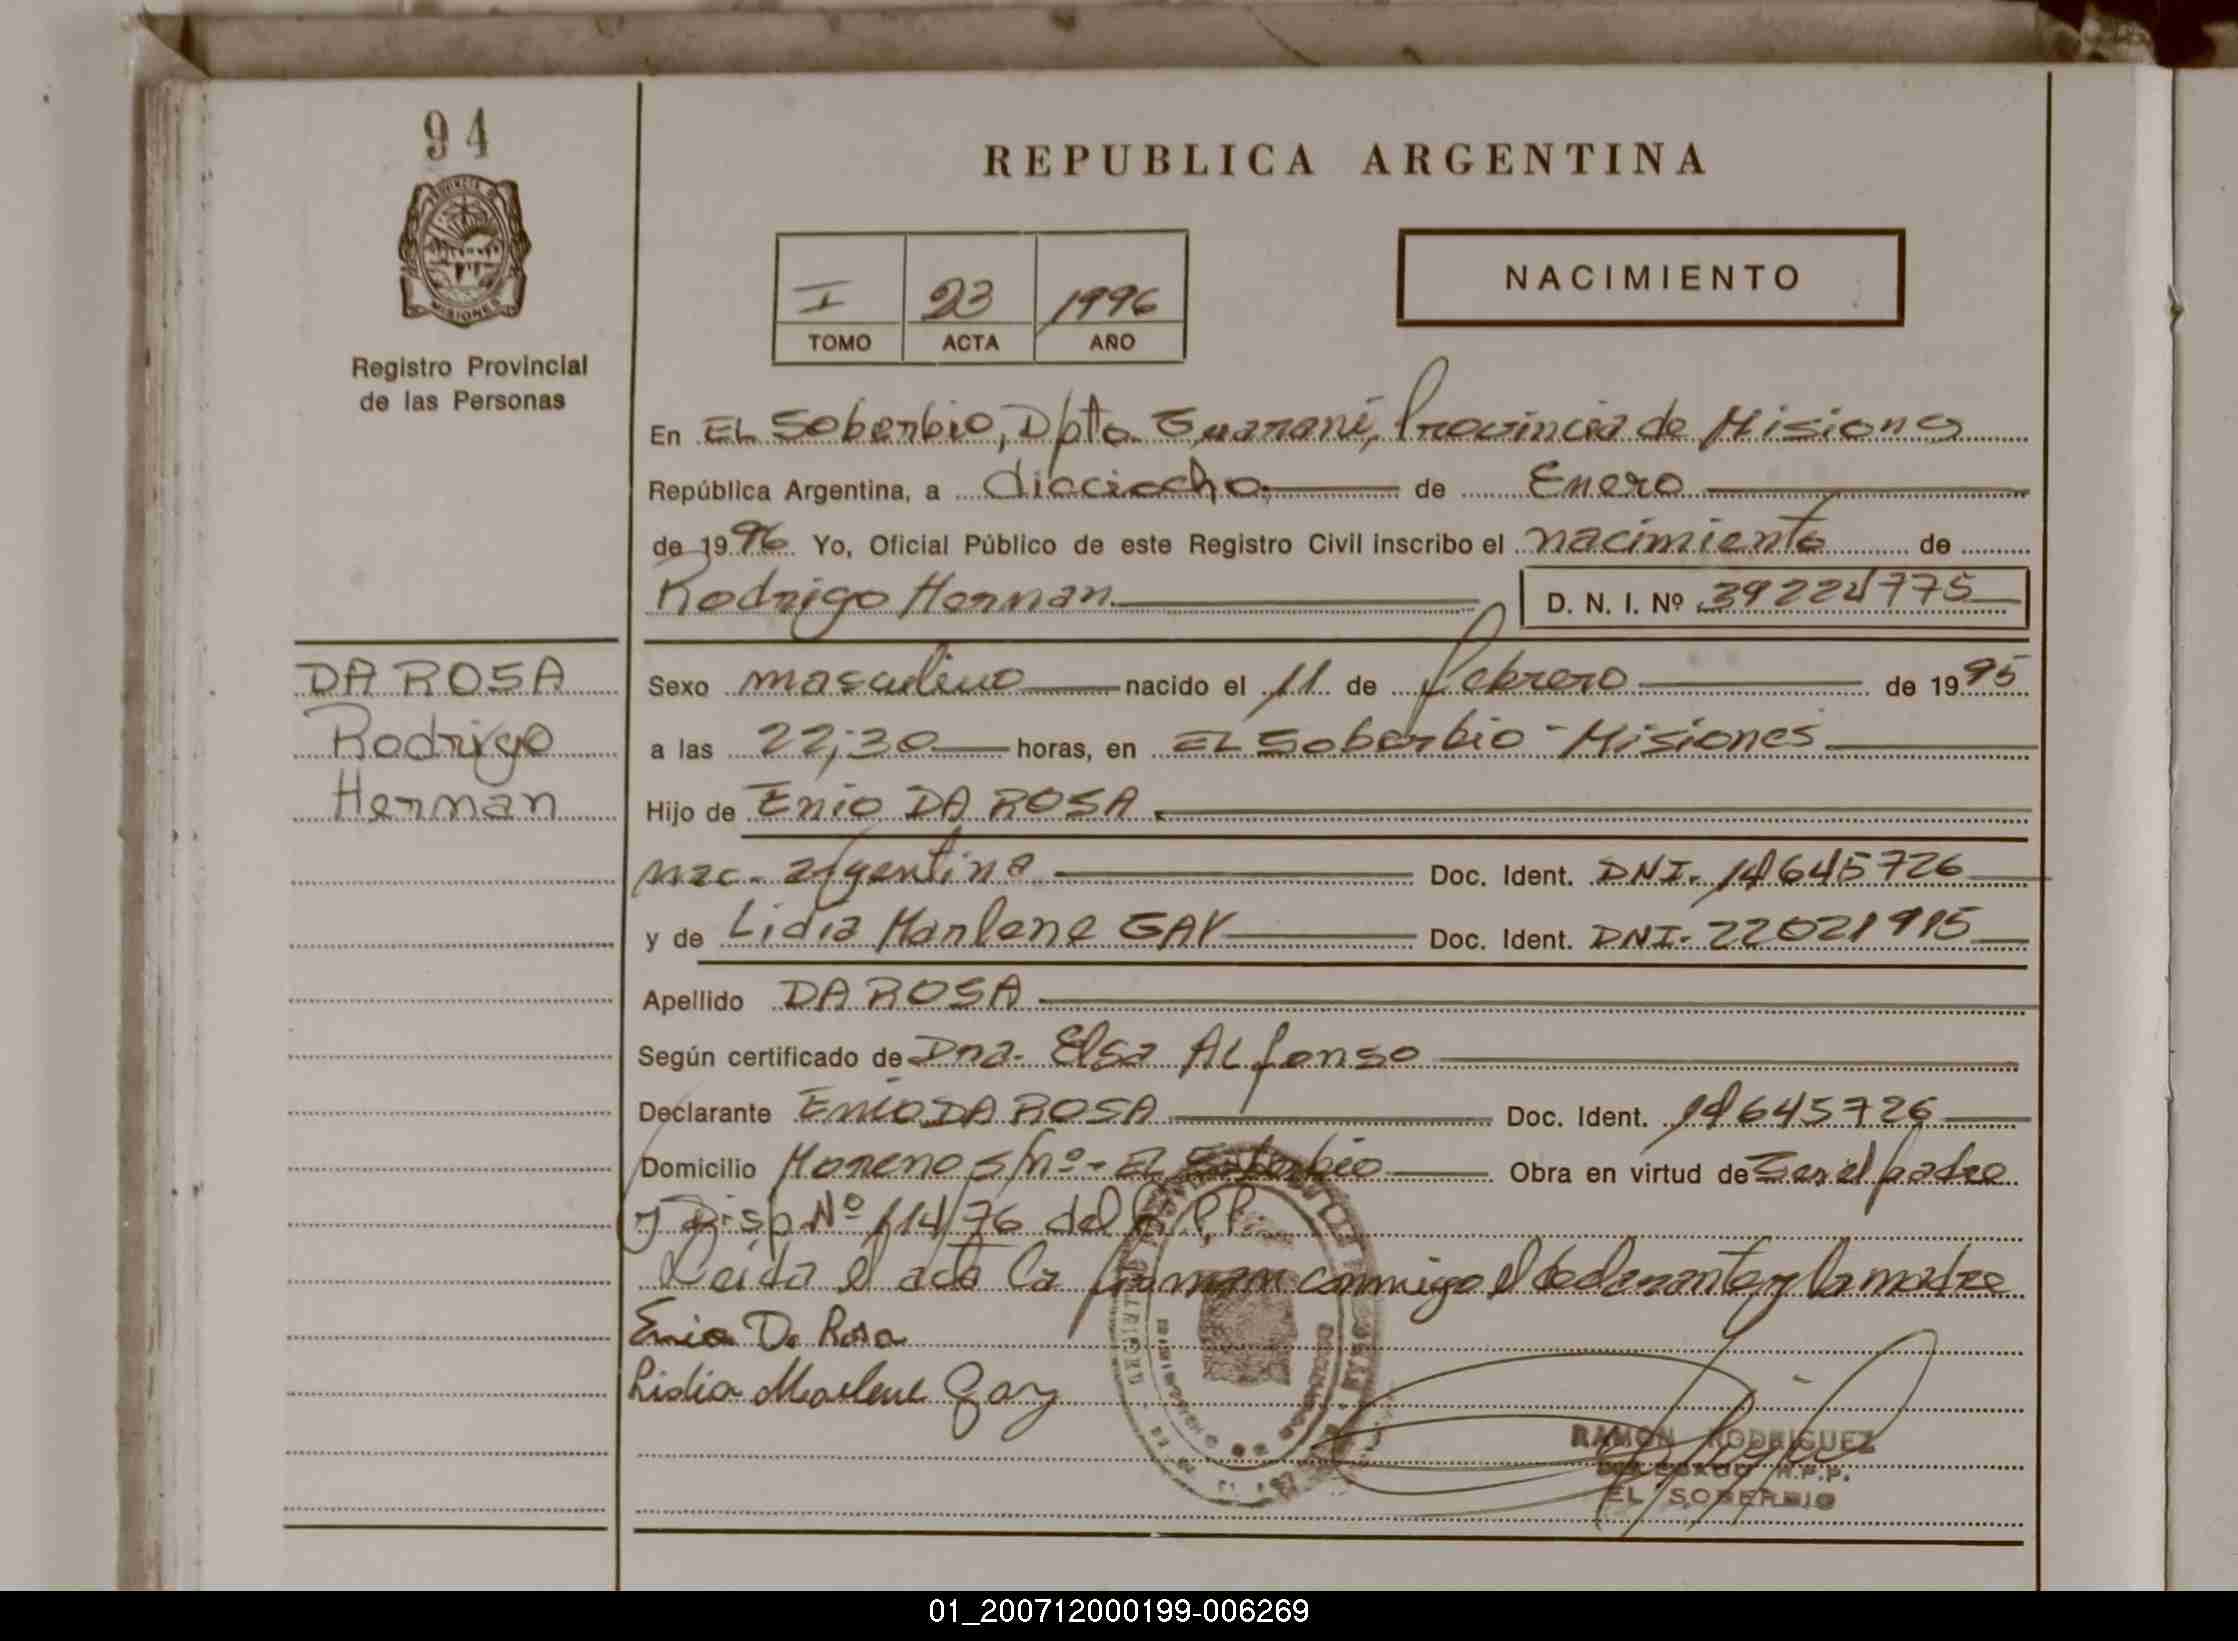 94
REPUBLICA ARGENTINA
PROVINCIA DE
MISIONES
Registro Provincial
de las Personas
I 23 1996
TOMO ACTA AÑO
NACIMIENTO
En EL Soberbio, Dpto. Guaraní, Provincia de Misiones
República Argentina, a dieciocho de Enero
de 1996 Yo, Oficial Público de este Registro Civil inscribo el nacimiento de
Rodrigo Hernan D. N. I. Nº 39224775
DA ROSA
Rodrigo
Hernan
Sexo masculino nacido el 11 de febrero de 1995
a las 22;30 horas, en EL Soberbio - Misiones
Hijo de Enio DA ROSA
nac. argentina Doc. Ident. DNI. 14645726
y de Lidia Marlene GAY Doc. Ident. DNI. 22021915
Apellido DA ROSA
Según certificado de Dra. Elsa ALfonso
Declarante Enio DA ROSA Doc. Ident. 14645726
Domicilio Moreno s/nº - EL Soberbio Obra en virtud de Ser el padre
y Disp Nº 114/76 del R.P.P.
Leida el acta la firman conmigo el declarante y la madre
Enio Da Rosa
Lidia Marlene Gay
RAMON RODRIGUEZ
DELEGADO R.P.P.
EL SOBERBIO
01_200712000199-006269